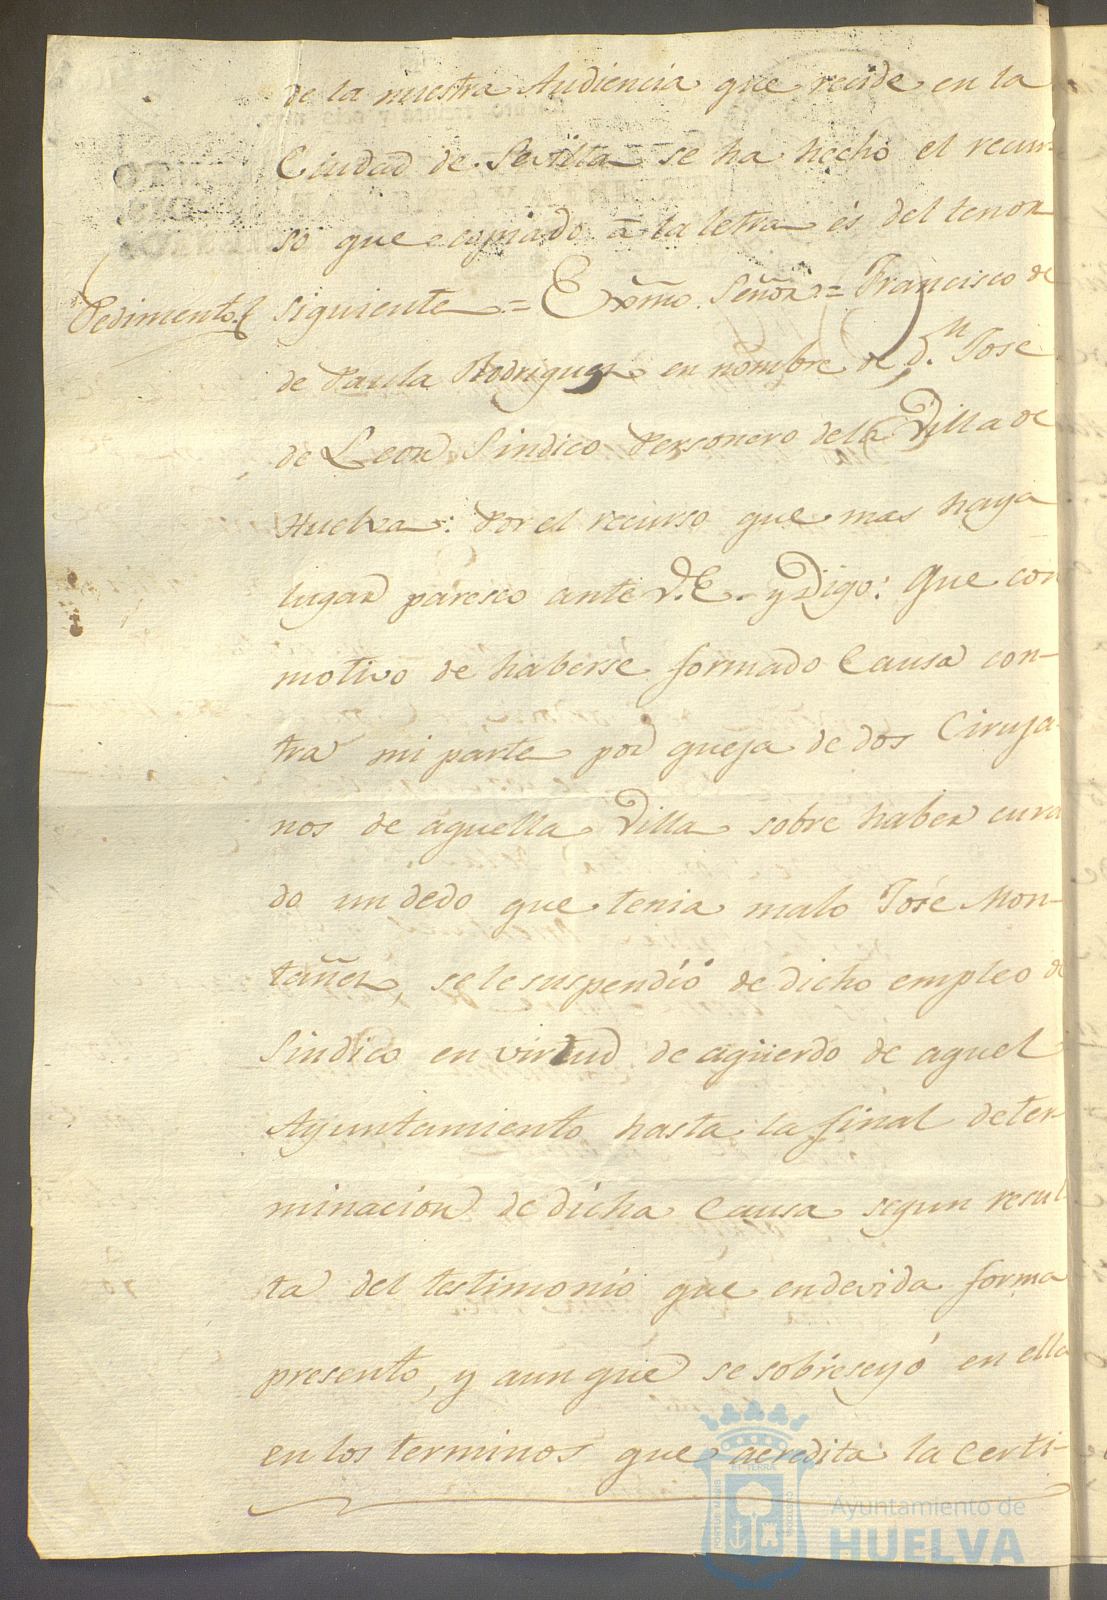 de la nuestra Audiencia que recide en la
Ciudad de Sevilla se ha hecho el recur-
so que copiado à la letra és del tenor
Pedimento. siguiente = Exmo. Señor = Francisco de
de Paula Rodriguez en nombre de D.n Jose
de Leon Sindico Personero de la Villa de
Huelva: Por el recurso que mas haya
lugar paresco ante V.E. y Digo: Que con
motivo de haberse formado Causa con-
tra mi parte por queja de dos Ciruja-
nos de aquella Villa sobre haber cura
do un dedo que tenia malo José Mon-
tañes, se le suspendió de dicho empleo de
Sindico en virtud de agüerdo de aquel
Ayuntamiento hasta la final deter
minacion de dicha Causa segun resul-
ta del testimonio que en devida forma
presento, y aunque se sobreseyó en ella
en los terminos que acredita la Certi-
Ayuntamiento de
HUELVA